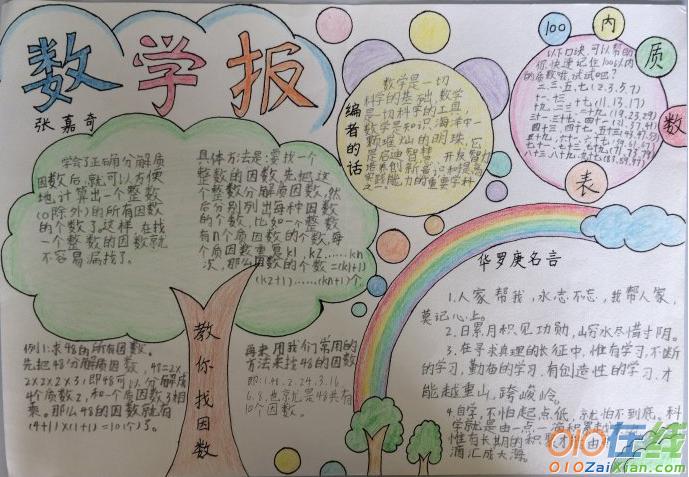 数学报
张嘉奇
学会了正确分解质
因数后,就可以方便
地,计算出一个整数
(0除外)的所有因数
的个数了。这样,在找
一个整数的因数就
不容易漏找了。
具体方法是:要找一个
整数的因数,先把这
个整数分解质因数,然
后分别列出每种因数
的个数,比如一个整数
有n个质因数的个数,每
个质因数重复k1,k2……kn
次,那么因数的个数=(k1+1)
(k2+1)……(kn+1)个
教你找因数
例1:求48的所有因数。
先把48分解质因数,48=2×
2×2×2×3;即48可以分解成
4个质数2,和一个质因数3相
乘。那么48的因数就有
(4+1)×(1+1)=10(个)。
再来用我们常用的
方法来找48的因数
即:1.48.2.24.3.16
6.8.也就是48共有
10个因数。
编者的话
数学是一切
科学的基础,数学
是一切科学的工具,
数学是知识海洋中一
颗璀灿的明珠,它
是启迪智慧
100
内
质
数
表
以下口诀,可以帮助
你快速记住100以内
的质数哦,试试吧?
二、三、五、七(2.3.5.7)
十一、十三、十七(11.13.17)
华罗庚名言
1.人家帮我,永志不忘,我帮人家,
莫记心上。
2.日累月积见功勋,山穷水尽惜寸阴。
3.在寻求真理的长征中,惟有学习,不断
的学习,勤奋的学习,有创造性的学习,才
能越重山,跨峻岭。
4.自学,不怕起点低,就怕不到底。科
学就是由一点一滴积累
惟有长期的积
滴汇成大海。
010在线
010ZaiXian.com